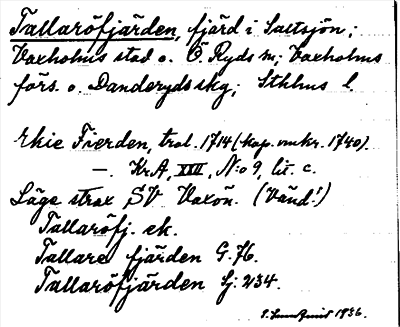 Tallaröfjärden, fjärd i Saltsjön;
Vaxholms stad o. Ö. Ryds sn; Vaxholms
förs. o. Danderyds skg; Sthlms l.
rkie Fierden, trol. 1714 (kop. omkr. 1740).
—. KrA, XVII, N:o 9, lit. c.
Läge strax SV Vaxön. (Vänd!)
Tallaröfj. ek.
Tallare fjärden G. 76.
Tallaröfjärden Sj: 234.
1936.